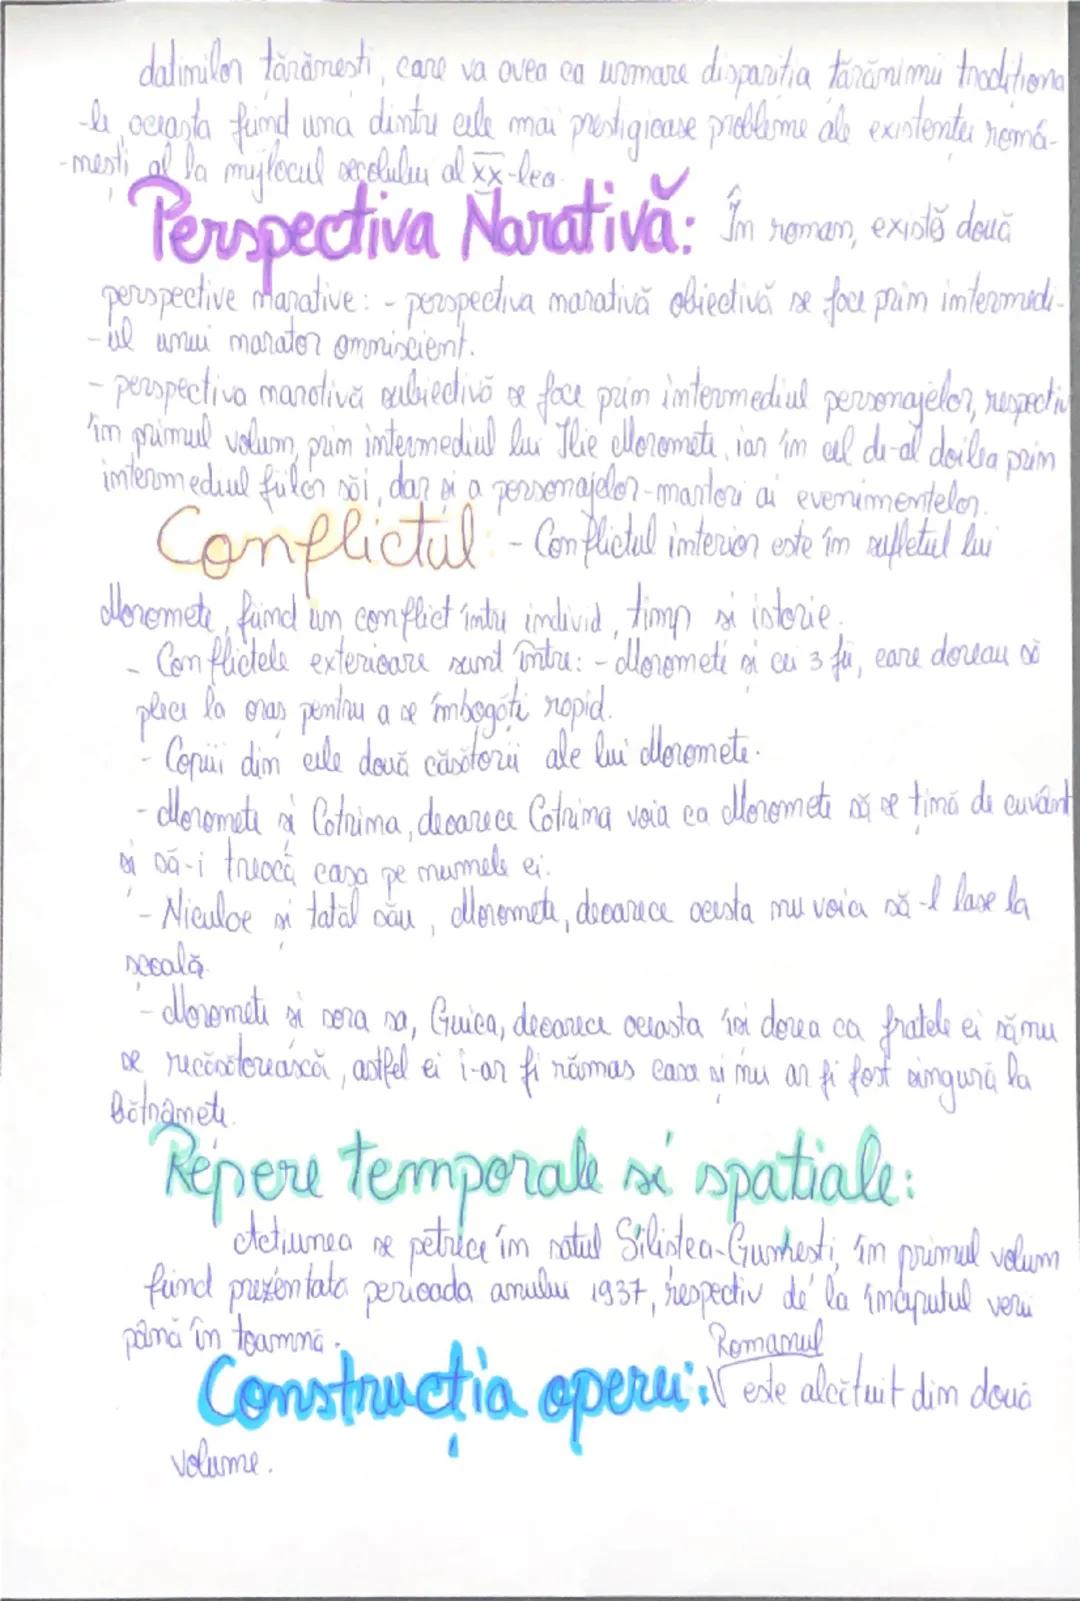 datinilor țărănești, care va avea ca urmare dispariția țărănimii tradiționa
-le, aceasta fiind una dintre cele mai prestigioase probleme ale existenței româ-
-nești al la mijlocul secolului al XX-lea.
Perspectiva Narativă: În roman, există două
perspective narative: - perspectiva narativă obiectivă se face prin intermedi-
-ul unui narator omniscient.
- perspectiva narativă subiectivă se face prin intermediul personajelor, respectiv
în primul volum, prin intermediul lui Ilie Moromete, iar în cel de-al doilea prin
intermediul fiilor săi, dar și a personajelor-martori ai evenimentelor.
Conflictul: - Conflictul interior este în sufletul lui
Moromete, fiind un conflict între individ, timp și istorie.
- Conflictele exterioare sunt între: - Moromete și cei 3 fii, care doreau să
plece la oraș pentru a se îmbogăți rapid.
- Copiii din cele două căsătorii ale lui Moromete.
- Moromete și Catrina, deoarece Catrina voia ca Moromete să se țină de cuvânt
și să-i treacă casa pe numele ei.
- Niculae și tatăl său, Moromete, deoarece acesta nu voia să-l lase la
școală.
- Moromete și sora sa, Guica, deoarece aceasta își dorea ca fratele ei să nu
se recăsătorească, astfel ei i-ar fi rămas casa și nu ar fi fost singură la
bătrânețe.
Repere temporale și spațiale:
Acțiunea se petrece în satul Siliștea-Gumești, în primul volum
fiind prezentată perioada anului 1937, respectiv de la începutul verii
până în toamnă.
Construcția operei: Romanul este alcătuit din două
volume.